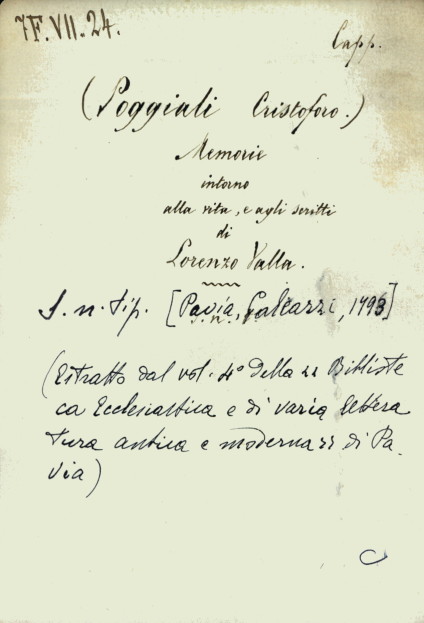 7F.VII.24.
Capp.
(Poggiali Cristoforo.)
Memorie
intorno
alla vita, e agli scritti
di
Lorenzo Valla.
S. n. tip. [Pavia, Galeazzi, 1793]
(Estratto dal vol. 4º della "Bibliote
ca Ecclesiastica e di varia lettera
tura antica e moderna" di Pa-
via)